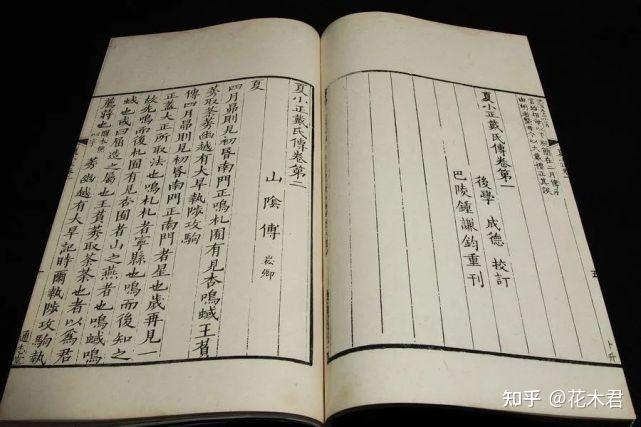 夏小正戴氏傳卷第一
後學 成德 校訂
巴陵鍾謙鈞重刊
夏小正戴氏傳卷第二
山陰傅 崧卿
夏
四月昴則見初昏南門正鳴札囿有見杏鳴蜮王萯
秀取荼莠幽越有大旱執陟攻駒
傳四月昴則見初昏南門正南門者星也歲再見一
正蓋大正所取法也鳴札者寧縣也鳴而後知之
故先鳴而後札囿有見杏囿者山之燕者也鳴蜮鳴
蜮也或曰屈造之屬也王萯秀取荼荼也者以爲君
薦蔣也 莠幽越有大旱記時爾執陟攻駒執
通志堂
知乎 @花木君